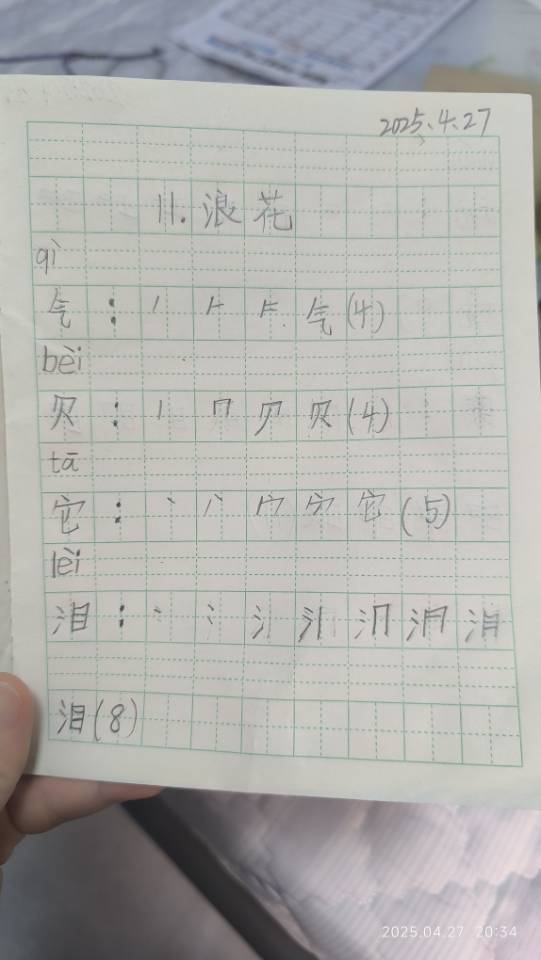 2025.4.27
11.浪花
qì
气：丿 𠂉 气(4)
bèi
贝：丨 冂 贝 贝(4)
tā
它：丶 丷 宀 它(5)
lèi
泪：丶 冫 氵 泪
泪(8)
2025.04.27 20:34